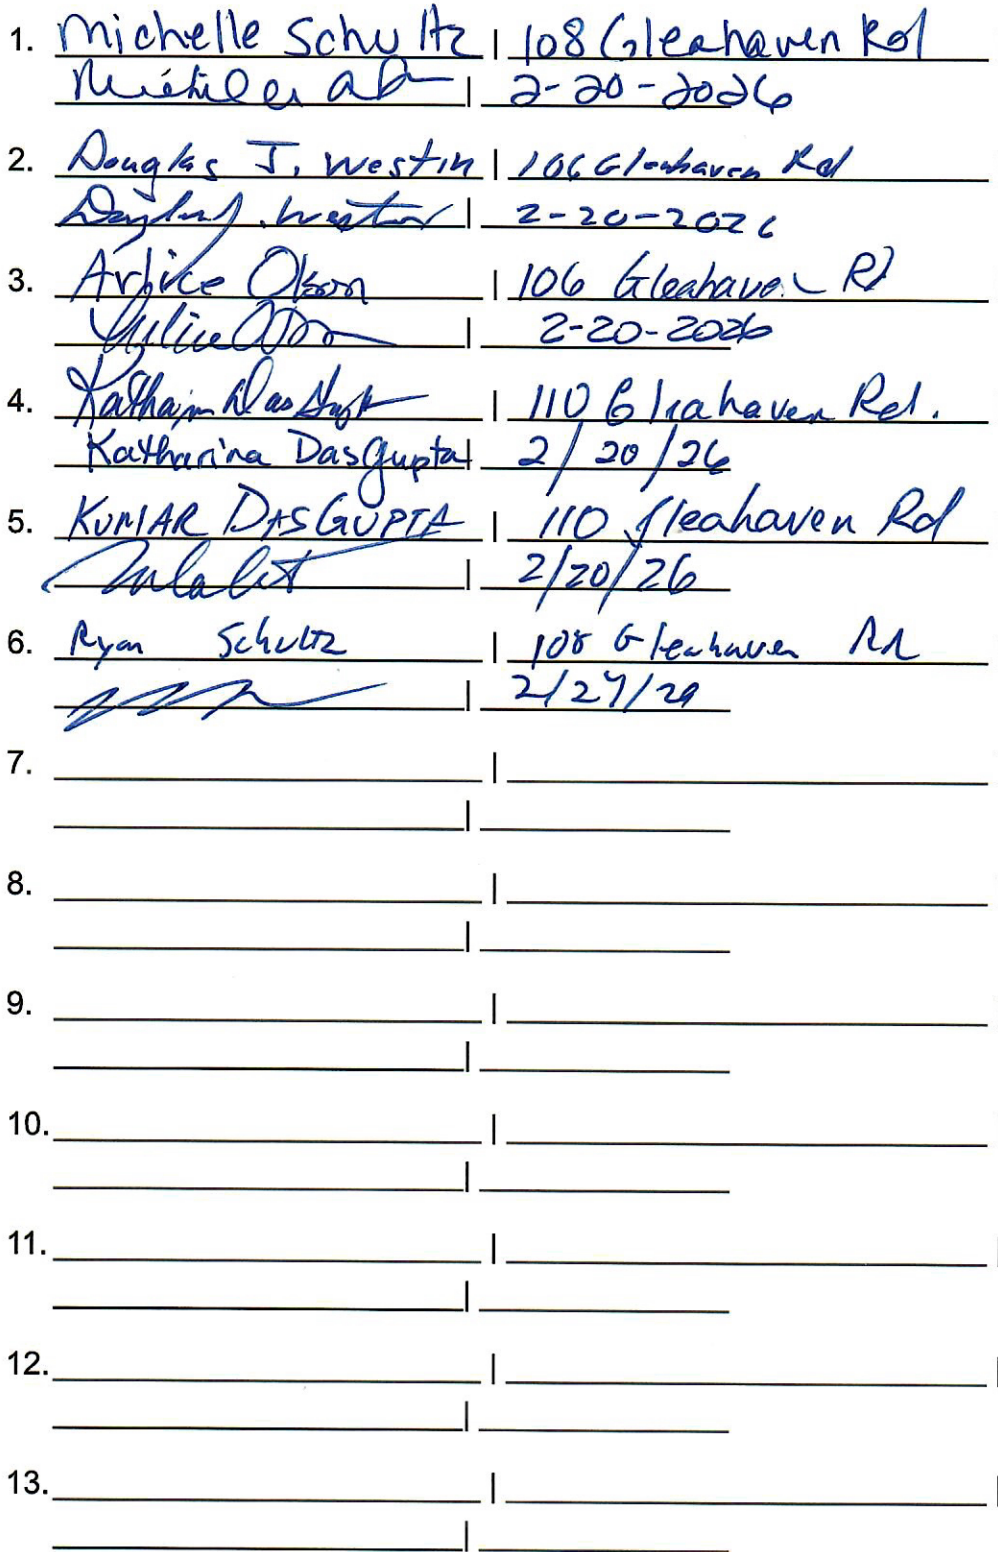 1. Michelle Schultz | 108 Gleahaven Rd
| 2-20-2026
2. Douglas J. Westin | 106 Gleahaven Rd
Douglas J. Westin | 2-20-2026
3. Arlice Olson | 106 Gleahaven Rd
Arlice Olson | 2-20-2026
4. Katharina DasGupta | 110 Gleahaven Rd.
Katharina DasGupta | 2/20/26
5. KUMAR DASGUPTA | 110 Gleahaven Rd
| 2/20/26
6. Ryan Schultz | 108 Gleahaven Rd
|
7. |
|
8. |
|
9. |
|
10. |
|
11. |
|
12. |
|
13. |
|